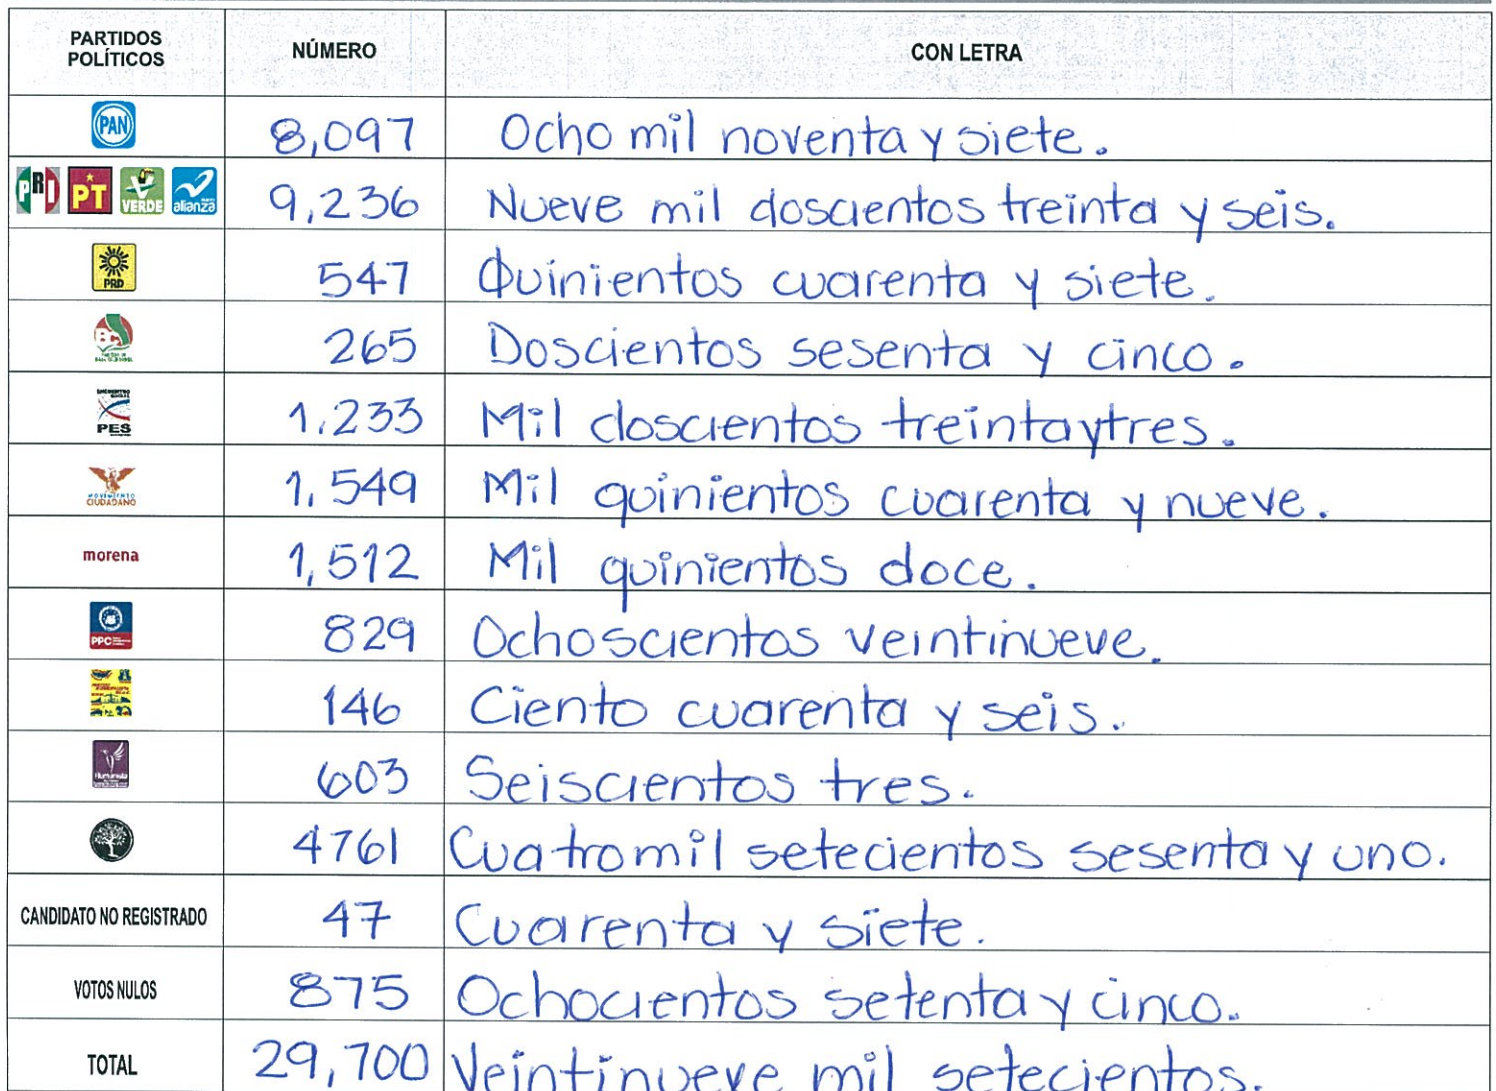 PARTIDOS POLÍTICOS NÚMERO CON LETRA
PAN 8,097 Ocho mil noventa y siete.
PRI PT VERDE alianza 9,236 Nueve mil doscientos treinta y seis.
PRD 547 Quinientos cuarenta y siete.
265 Doscientos sesenta y cinco.
ENCUENTRO SOCIAL PES 1,233 Mil doscientos treintaytres.
MOVIMIENTO CIUDADANO 1,549 Mil quinientos cuarenta y nueve.
morena 1,512 Mil quinientos doce.
PPC 829 Ochoscientos veintinueve.
146 Ciento cuarenta y seis.
Humanista 603 Seiscientos tres.
4761 Cuatromil setecientos sesenta y uno.
CANDIDATO NO REGISTRADO 47 Cuarenta y siete.
VOTOS NULOS 875 Ochocientos setenta y cinco.
TOTAL 29,700 Veintinueve mil setecientos.